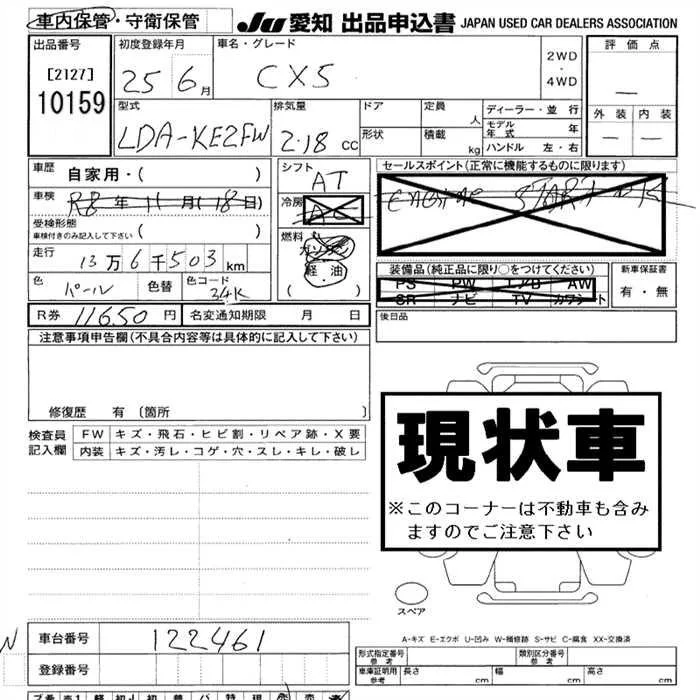 車内保管・守衛保管 JU 愛知 出品申込書 JAPAN USED CAR DEALERS ASSOCIATION
出品番号 初度登録年月 車名・グレード 評価点
[2127] 25 6月 CX5 2WD・4WD —
10159 型式 排気量 ドア 定員 人 ディーラー・並行 外装 内装
LDA-KE2FW 2.18 CC 形状 積載 kg モデル年式 年 — —
ハンドル 左・右
車歴 自家用・( ) シフト AT セールスポイント(正常に機能するものに限ります)
車検 R8年11月(18日) 冷房 AC
受検形態 車検付きのみ記入して下さい ( ) 燃料 ガソリン
走行 13万6千503km 軽・油 装備品(純正品に限り○をつけてください) 新車保証書
色 パール 色替 色コード 34K ( ) PS PW エアB AW 有・無
SR ナビ TV カワシート
R券 11650円 名変通知期限 月 日 後日品
注意事項申告欄(不具合内容等は具体的に記入して下さい)
修復歴 有 〔箇所 〕
現状車
※このコーナーは不動車も含み
ますのでご注意下さい
検査員 FW キズ・飛石・ヒビ割・リペア跡・X要
記入欄 内装 キズ・汚レ・コゲ・穴・スレ・キレ・破レ
スペア
車台番号 122461
A-キズ E-エクボ U-凹み W-補修跡 S-サビ C-腐食 XX-交換済
登録番号 形式指定番号 参考 類別区分番号 参考
車庫証明用 参考 長さ cm 幅 cm 高さ cm